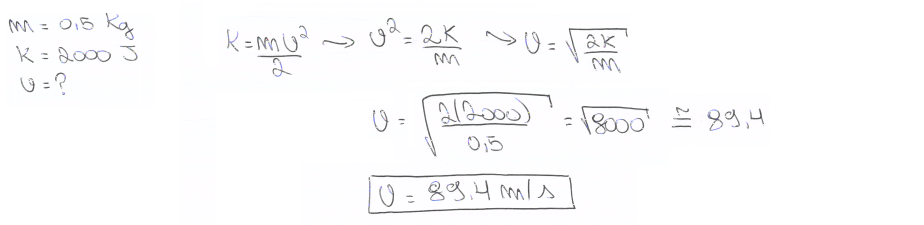 m = 0,5 Kg
K = 2000 J
v = ?
K = mv²/2 → v² = 2K/m → v = √(2K/m)
v = √(2(2000)/0,5) = √8000 ≅ 89,4
v = 89,4 m/s